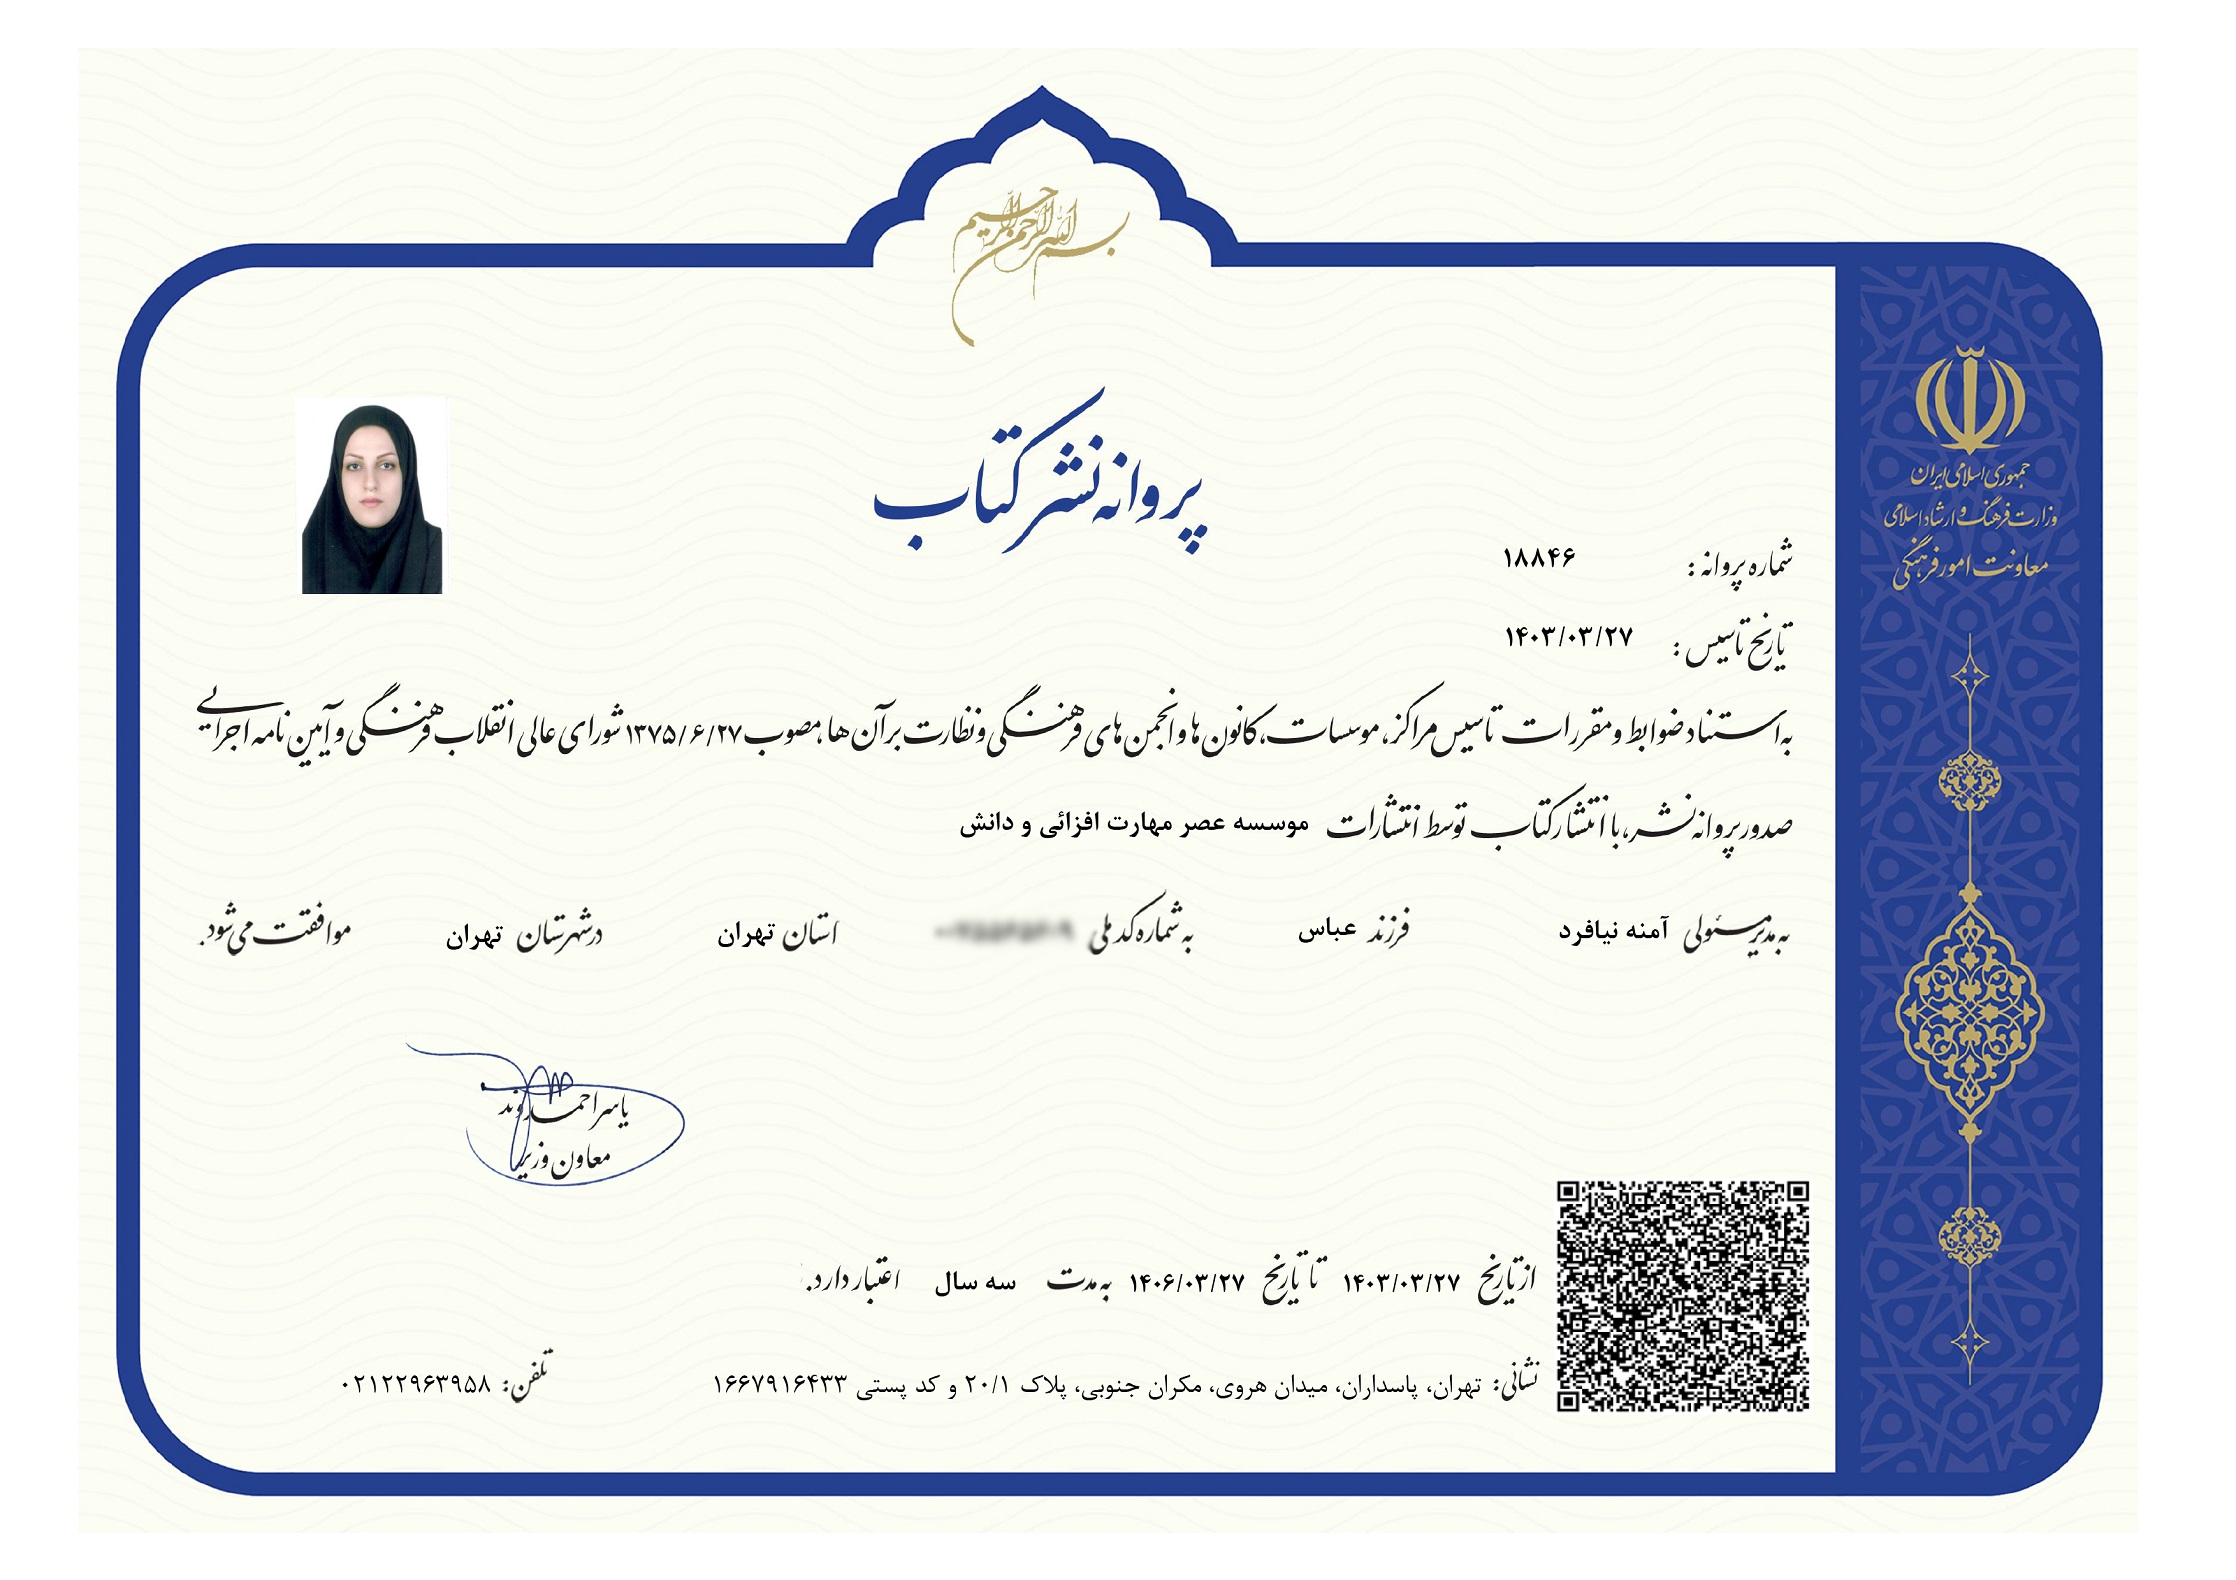 بسم الله الرحمن الرحیم
جمهوری اسلامی ایران
وزارت فرهنگ و ارشاد اسلامی
معاونت امور فرهنگی
پروانه نشر کتاب
شماره پروانه : ۱۸۸۴۶
تاریخ تاسیس : ۱۴۰۳/۰۳/۲۷
به استناد ضوابط و مقررات تاسیس مراکز، موسسات، کانون ها و انجمن های فرهنگی و نظارت بر آن ها، مصوب ۱۳۷۵/۶/۲۷ شورای عالی انقلاب فرهنگی و آیین نامه اجرایی
صدور پروانه نشر، با انتشار کتاب توسط انتشارات موسسه عصر مهارت افزائی و دانش
به مدیر مسئولی آمنه نیافرد فرزند عباس به شماره کد ملی استان تهران در شهرستان تهران موافقت می شود.
یاسر احمدوند
معاون وزیر
از تاریخ ۱۴۰۳/۰۳/۲۷ تا تاریخ ۱۴۰۶/۰۳/۲۷ به مدت سه سال اعتبار دارد.
نشانی: تهران، پاسداران، میدان هروی، مکران جنوبی، پلاک ۲۰/۱ و کد پستی ۱۶۶۷۹۱۶۴۳۳ تلفن: ۰۲۱۲۲۹۶۳۹۵۸